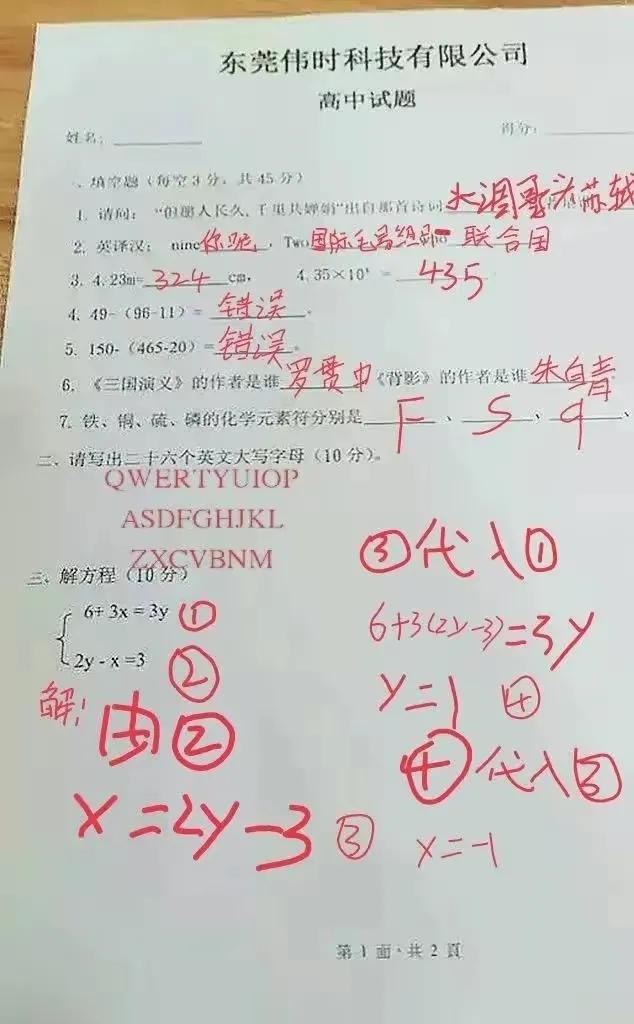 东莞伟时科技有限公司
高中试题
姓名：________ 得分：________
一、填空题（每空3分，共45分）
1. 请问：“但愿人长久，千里共婵娟”出自那首诗词 水调歌头 苏轼
2. 英译汉： nine 你呢 ，Two 国际毛局组织 who 联合国
3. 4.23m= 324 cm， 4.35×10³ = 435
4. 49-（96-11）= 错误 。
5. 150-（465-20）= 错误 。
6. 《三国演义》的作者是谁 罗贯中 《背影》的作者是谁 朱自青
7. 铁、铜、硫、磷的化学元素符分别是 F 、 S 、 q 、
二、请写出二十六个英文大写字母（10分）。
QWERTYUIOP
ASDFGHJKL
ZXCVBNM
三、解方程（10分）
6+ 3x = 3y ①
2y - x =3 ②
解：
由②
x=2y-3 ③
③代入①
6+3(2y-3)=3y
y=1 ④
④代入③
x=-1
第 1 面·共 2 頁